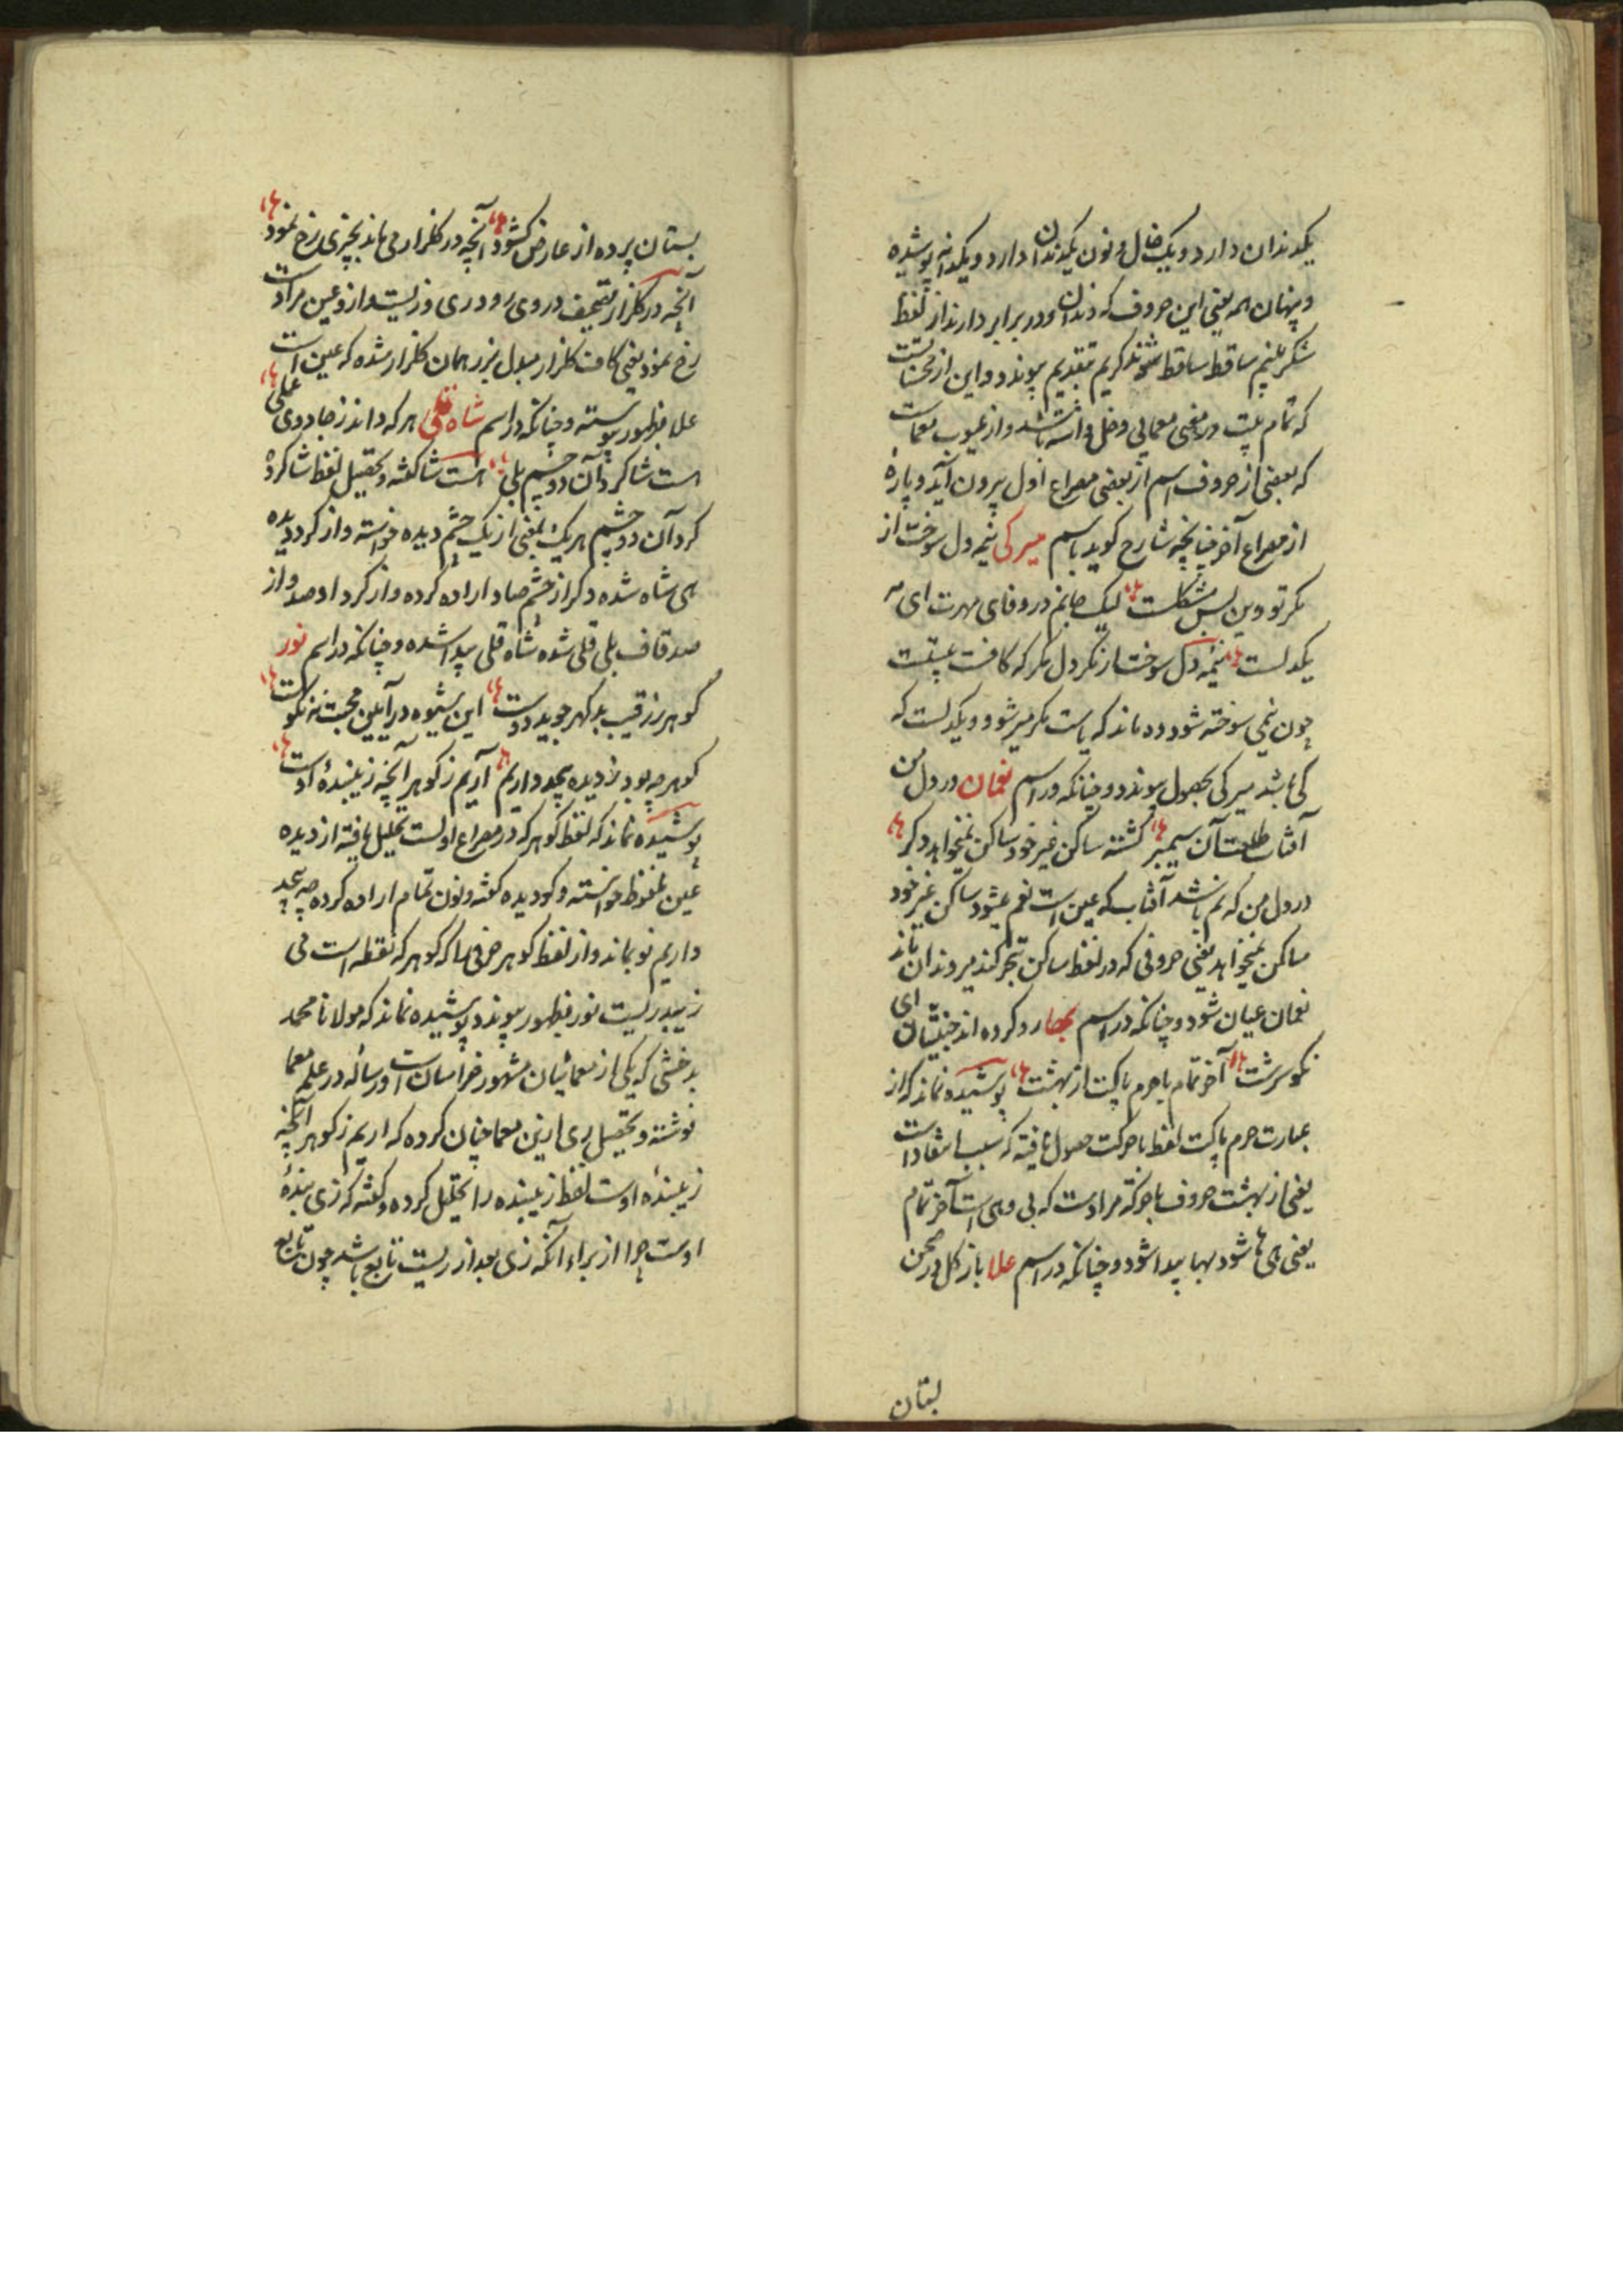 یکدندان دارد و یک خال و نون یکدندان دارد و یکدانه پوشیده
و پنهان همه یعنی این حروف که دندان و در برابر دارند از لفظ
شکر ساقط ساقط کریم بتقدیم پیوندد و این از محسنات
که تمام بیت در معنی معمایی دخل داشته باشد و از عیوب معماست
که بعضی از حروف اسم از بعضی مصراع اول بیرون آید و پارهٔ
از مصراع آخر چنانچه شارح کوید باسم میرکی نیمه دل سوخت از
مکر تو وین بس مشکلست لیک جانم در وفای مهرت ای مه
یکدلست نیمه دل سوخت از مکر دل مکر که کافست
چون نیمی سوخته شود ده ماند که یاست مکر میر شود و یکدلست که
کی باشد میرکی بحصول پیوندد و چنانکه در اسم نعمان در دل من
آفتاب طلعت آن سیمبر کشته ساکن غیر خود ساکن نمیخواهد دکر
در دل من که نم باشد آفتاب که عین است نعم شود ساکن غیر خود
ساکن نمیخواهد یعنی حروفی که در لفظ ساکن
نعمان عیان شود و چنانکه در اسم بها رد کرده اند ای
نکو سرشت آخر تمام با جرم پاکت از بهشت پوشیده نماند که از
عبارت جرم پاکت لفظ با حرکت حصول یافته که سبب انتقادات
یعنی از بهشت حروف با حرکة مرادست که بی و هی است آخر تمام
یعنی هی ها شود بها پیدا شود و چنانکه در اسم علا باز کل در صحن
بستان
بستان پرده از عارض کشود آنچه در کلزار می ماند بچیزی رخ نمود
آنچه در کلزار بتصحیف در وی رو دری وزیست و ازو عین مرادست
رخ نمود یعنی کاف کلزار مبدل بزر همان کلزار شده که عین است
علا بظهور پیوسته و چنانکه در اسم شاه قلی هر که داند ز جادوی علی
است شاکرد آن دو چشم بلی است شا کفته و بتحصیل لفظ شاکرد
کرد آن دو چشم هر یک بمعنی از یک چشم دیده خواسته و از کرد دیده
هی شاه شده و کر از چشم صاد اراده کرده و از کرد او صد و از
صد قاف بلی قلی شده شاه قلی پیدا شده و چنانکه در اسم نور
کوهر ز رقیب بد کهر جوید دوست این شیوه در آیین محبت نه نکوست
کوهر چه بود ز دیده بیحد داریم آریم ز کوهر آنچه زیبندهٔ اوست
پوشیده نماند که لفظ کوهر که در مصراع اولست تحلیل یافته از دیده
عین ملفوظ خواسته و کو دیده کفته و نون تمام اراده کرده چه بیحد
داریم نو بماند و از لفظ کوهر حرفی را که کوهر که نقطه است می
زیبد ریست نور بظهور پیوندد پوشیده نماند که مولانا محمد
بدخشی که یکی از معمائیان مشهور خراسان است و رساله در علم معما
نوشته و بتحصیل ری ازین معما چنان کرده که اریم ز کوهر آنچه
زیبندهٔ اوست لفظ زیبنده را تحلیل کرده و کفته که زی بندهٔ
اوست چرا از برای آنکه زی بعد از ریست تابع باشد چون تابع